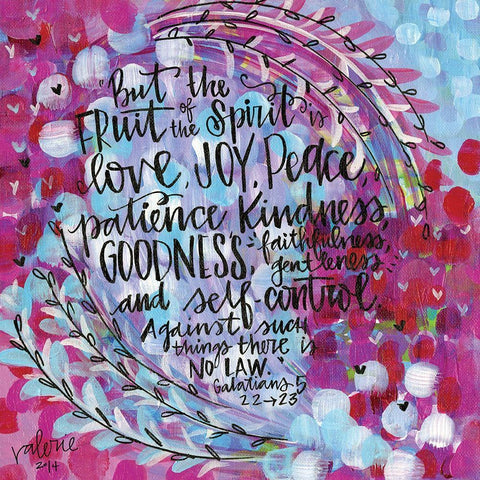 "But the
FRUIT of the Spirit is
love, JOY, Peace,
patience Kindness,
GOODNESS, faithfulness,
gentleness
and self-control.
Against such
things there is
NO LAW."
Galatians 5
22→23
valerie
2014